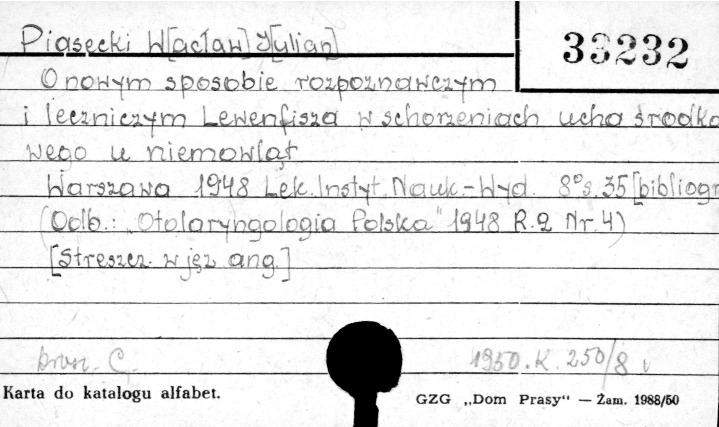 Piasecki W[acław] J[ulian]
33232
O nowym sposobie rozpoznawczym
i leczniczym Lewenfisza w schorzeniach ucha środko
wego u niemowląt
Warszawa 1948 Lek. Instyt. Nauk.-Wyd. 8° s. 35 [bibliogr
(Odb.: „Otolaryngologia Polska" 1948 R. 2 Nr. 4)
[Streszcz. w jęz. ang.]
brosz. C.
1950. K. 250/8
Karta do katalogu alfabet.
GZG „Dom Prasy" — Zam. 1988/50